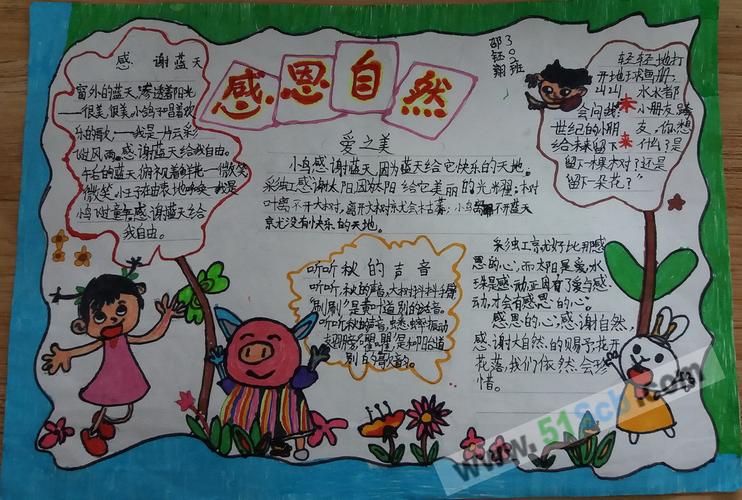 感恩自然
302班
邵钰翔
感谢蓝天
窗外的蓝天,渗透着阳光
——很美,很美,小鸽子唱着欢
乐的歌,——我是一片云彩
感谢蓝天给我自由。
午台的蓝天俯视着鲜花一微笑
微笑,小王子在草地
感谢蓝天给
我自由。
爱之美
小鸟感谢蓝天,因为蓝天给它快乐的天地。
彩虹感谢太阳,因太阳给它美丽的光泽;树
叶离不开大树,离开大树京尤会枯落;小鸟离不开蓝天
京尤没有快乐的天地。
轻轻地打
开地球画册,
山山水水都
会问线:小朋友,跨
世纪的小朋友,你想
给未来留下来什么?是
留下一棵木对?还是
留下一朵花?"
听听秋的声音
听听,秋的声音,大树抖抖手臂
"刷刷"是黄叶道别的话音。
听听,秋的声音,蟋蟀振动
翅膀"䍀䍀"是和阳台道
别的歌韵。
彩虹京尤好比那感
恩的心,而太阳是爱,水
珠是感动,正因有了爱与感
动,才会有感恩的心。
感恩的心,感谢自然,
感谢大自然的赐予,花开
花落,我们依然会珍
惜。
www.518cbf.com